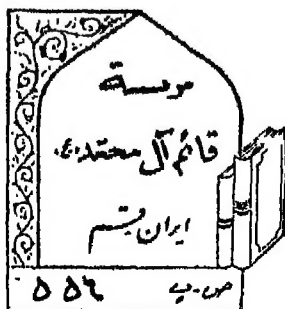 موسسة
قائم آل محمد «ع»
ایران قم
ص-پ ۵۵۶